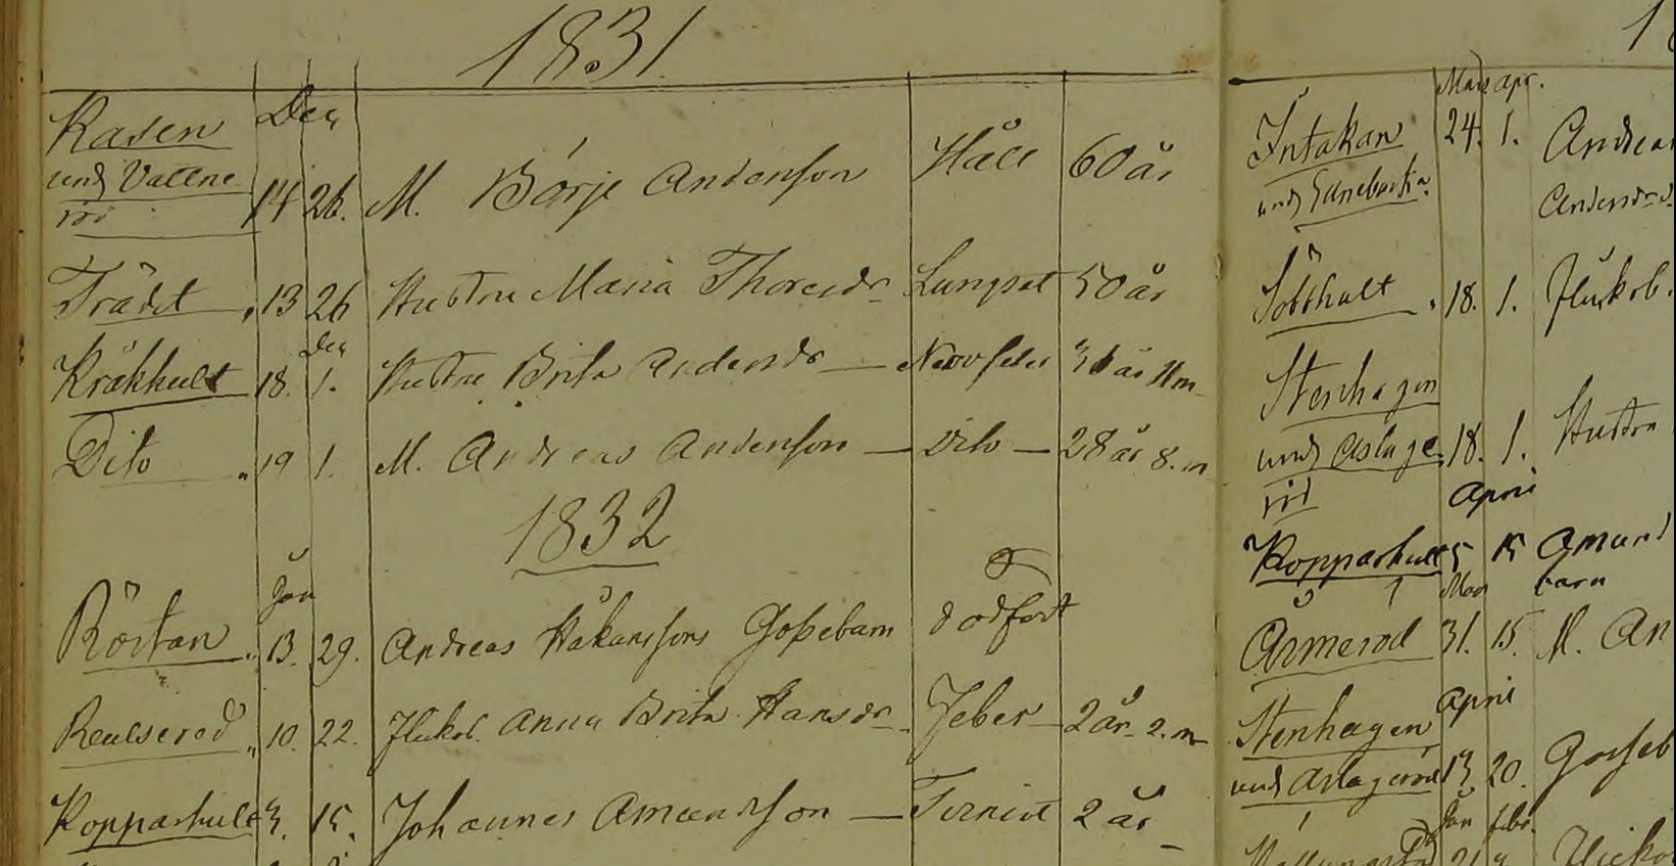 1831
Kasen
und Vallne
röd
Dec
14 26. M. Börje Andersson Håll 60 år
Trädet 13 26 Hustru Maria Thoresdr Lungsot 50 år
Dec
Kråkhult 18. 1. Hustru Brita Andersdr — Nervfeber 36 år 11 m
Dito 19 1. M. Andreas Andersson — Dito — 28 år 8. m
1832
Jan
Röstan 13. 29. Andreas Håkanssons Gossebarn dödfört
Reulsered 10. 22. Flickeb. Anna Brita Hansdr Feber 2 år 2. m
Kopparhult 3. 15. Johannes Amundsson — 2 år
Mars apr.
Intakan 24. 1. Andreas
und Andersdr
18. 1.
Stenhagen
und Aslage
röd 18. 1. Hustru
April
Kopparhult 5 15 Amund
barn
Mars
Armeröd 31. 15. M. An
April
Stenhagen
und Aslageröd 13 20. Gosseb
Jan febr.